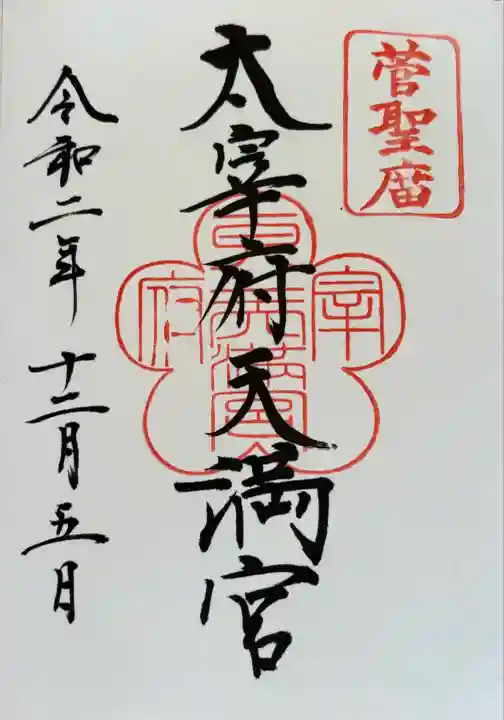 菅聖庿
太宰府天満宮
宰
府
令和二年十二月五日